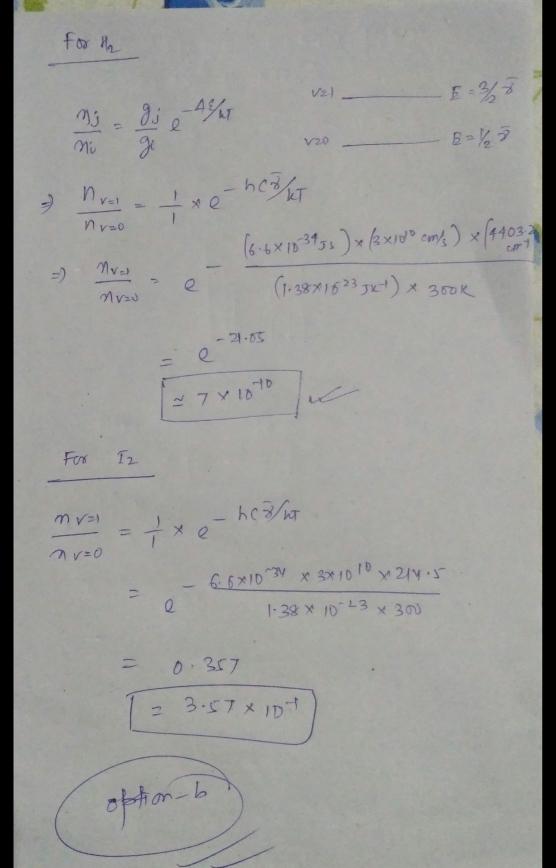 For H₂
v=1 ———— E = 3/2 ν̄
nj/ni = gj/gi e^-Δε/kT
v=0 ———— E = 1/2 ν̄
⇒ n v=1 / n v=0 = 1/1 × e^- hcν̄/kT
⇒ n v=1 / n v=0 = e^- (6.6×10^-34 Js) × (3×10^10 cm/s) × (4403.2 cm^-1 / (1.38×10^-23 JK^-1) × 300K
= e^-21.05
≃ 7 × 10^-10 ✓
For I₂
n v=1 / n v=0 = 1/1 × e^- hcν̄/kT
= e^- 6.6×10^-34 × 3×10^10 × 214.5 / 1.38 × 10^-23 × 300
= 0.357
= 3.57 × 10^-1
option-b